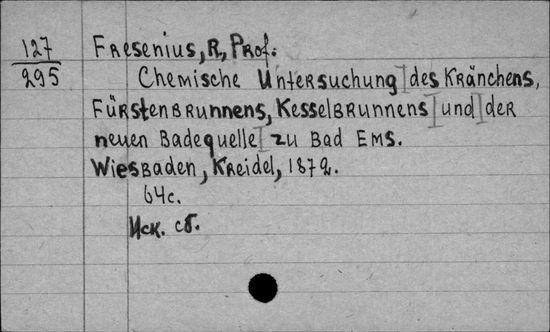 127
295
Fresenius, R, Prof.
Chemische Untersuchung des Kränchens,
Fürstenbrunnens, Kesselbrunnens und der
neuen Badequelle zu Bad Ems.
Wiesbaden, Kreidel, 1872.
64c.
Иск. сб.